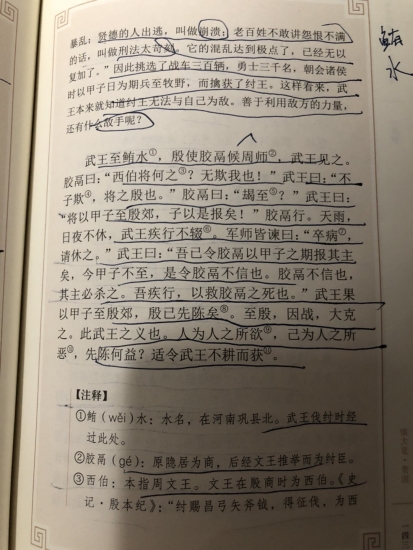 暴乱；贤德的人出逃，叫做崩溃；老百姓不敢讲怨恨不满
的话，叫做刑法太苛刻。它的混乱达到极点了，已经无以
复加了。”因此挑选了战车三百辆，勇士三千名，朝会诸侯
时以甲子日为期兵至牧野，而擒获了纣王。这样看来，武
王本来就知道纣王无法与自己为敌。善于利用敌方的力量，
还有什么敌手呢？
武王至鲔水①，殷使胶鬲候周师②，武王见之。
胶鬲曰：“西伯将何之③？无欺我也！”武王曰：“不
子欺④，将之殷也。”胶鬲曰：“朅至⑤？”武王曰：
“将以甲子至殷郊，子以是报矣！”胶鬲行。天雨，
日夜不休，武王疾行不辍⑥。军师皆谏曰：“卒病⑦，
请休之。”武王曰：“吾已令胶鬲以甲子之期报其主
矣，今甲子不至，是令胶鬲不信也。胶鬲不信也，
其主必杀之。吾疾行，以救胶鬲之死也。”武王果
以甲子至殷郊，殷已先陈矣⑧。至殷，因战，大克
之。此武王之义也。人为人之所欲⑨，己为人之所
恶⑩，先陈何益？适令武王不耕而获⑪。
【注释】
①鲔（wěi）水：水名，在河南巩县北。武王伐纣时经
过此处。
②胶鬲（gé）：原隐居为商，后经文王推举而为纣臣。
③西伯：本指周文王。文王在殷商时为西伯。《史
记·殷本纪》：“纣赐昌弓矢斧钺，得征伐，为西
鲔
水